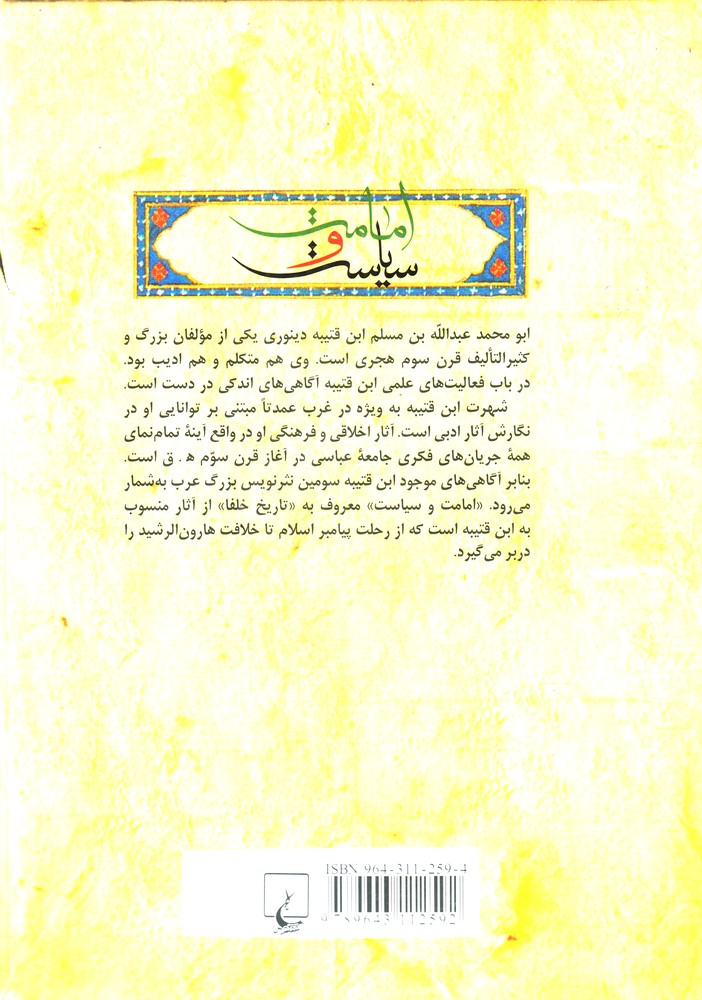 امامت
و
سیاست
ابو محمد عبداللّه بن مسلم ابن قتیبه دینوری یکی از مؤلفان بزرگ و
کثیرالتألیف قرن سوم هجری است. وی هم متکلم و هم ادیب بود.
در باب فعالیت‌های علمی ابن قتیبه آگاهی‌های اندکی در دست است.
شهرت ابن قتیبه به ویژه در غرب عمدتاً مبتنی بر توانایی او در
نگارش آثار ادبی است. آثار اخلاقی و فرهنگی او در واقع آینهٔ تمام‌نمای
همهٔ جریان‌های فکری جامعهٔ عباسی در آغاز قرن سوّم ه‍. ق است.
بنابر آگاهی‌های موجود ابن قتیبه سومین نثرنویس بزرگ عرب به‌شمار
می‌رود. «امامت و سیاست» معروف به «تاریخ خلفا» از آثار منسوب
به ابن قتیبه است که از رحلت پیامبر اسلام تا خلافت هارون‌الرشید را
دربر می‌گیرد.
ISBN 964-311-259-4
9 789643 112592